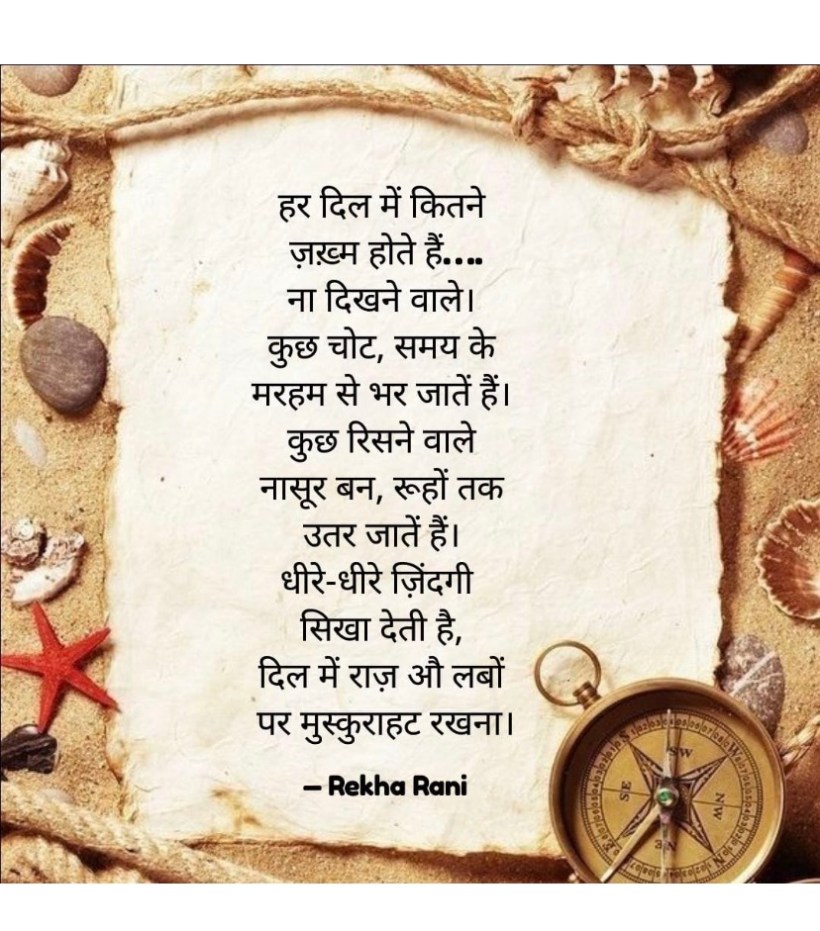 हर दिल में कितने
ज़ख़्म होते हैं....
ना दिखने वाले।
कुछ चोट, समय के
मरहम से भर जातें हैं।
कुछ रिसने वाले
नासूर बन, रूहों तक
उतर जातें हैं।
धीरे-धीरे ज़िंदगी
सिखा देती है,
दिल में राज़ औ लबों
पर मुस्कुराहट रखना।
— Rekha Rani
S
SW
W
SE
NW
E
NE
N